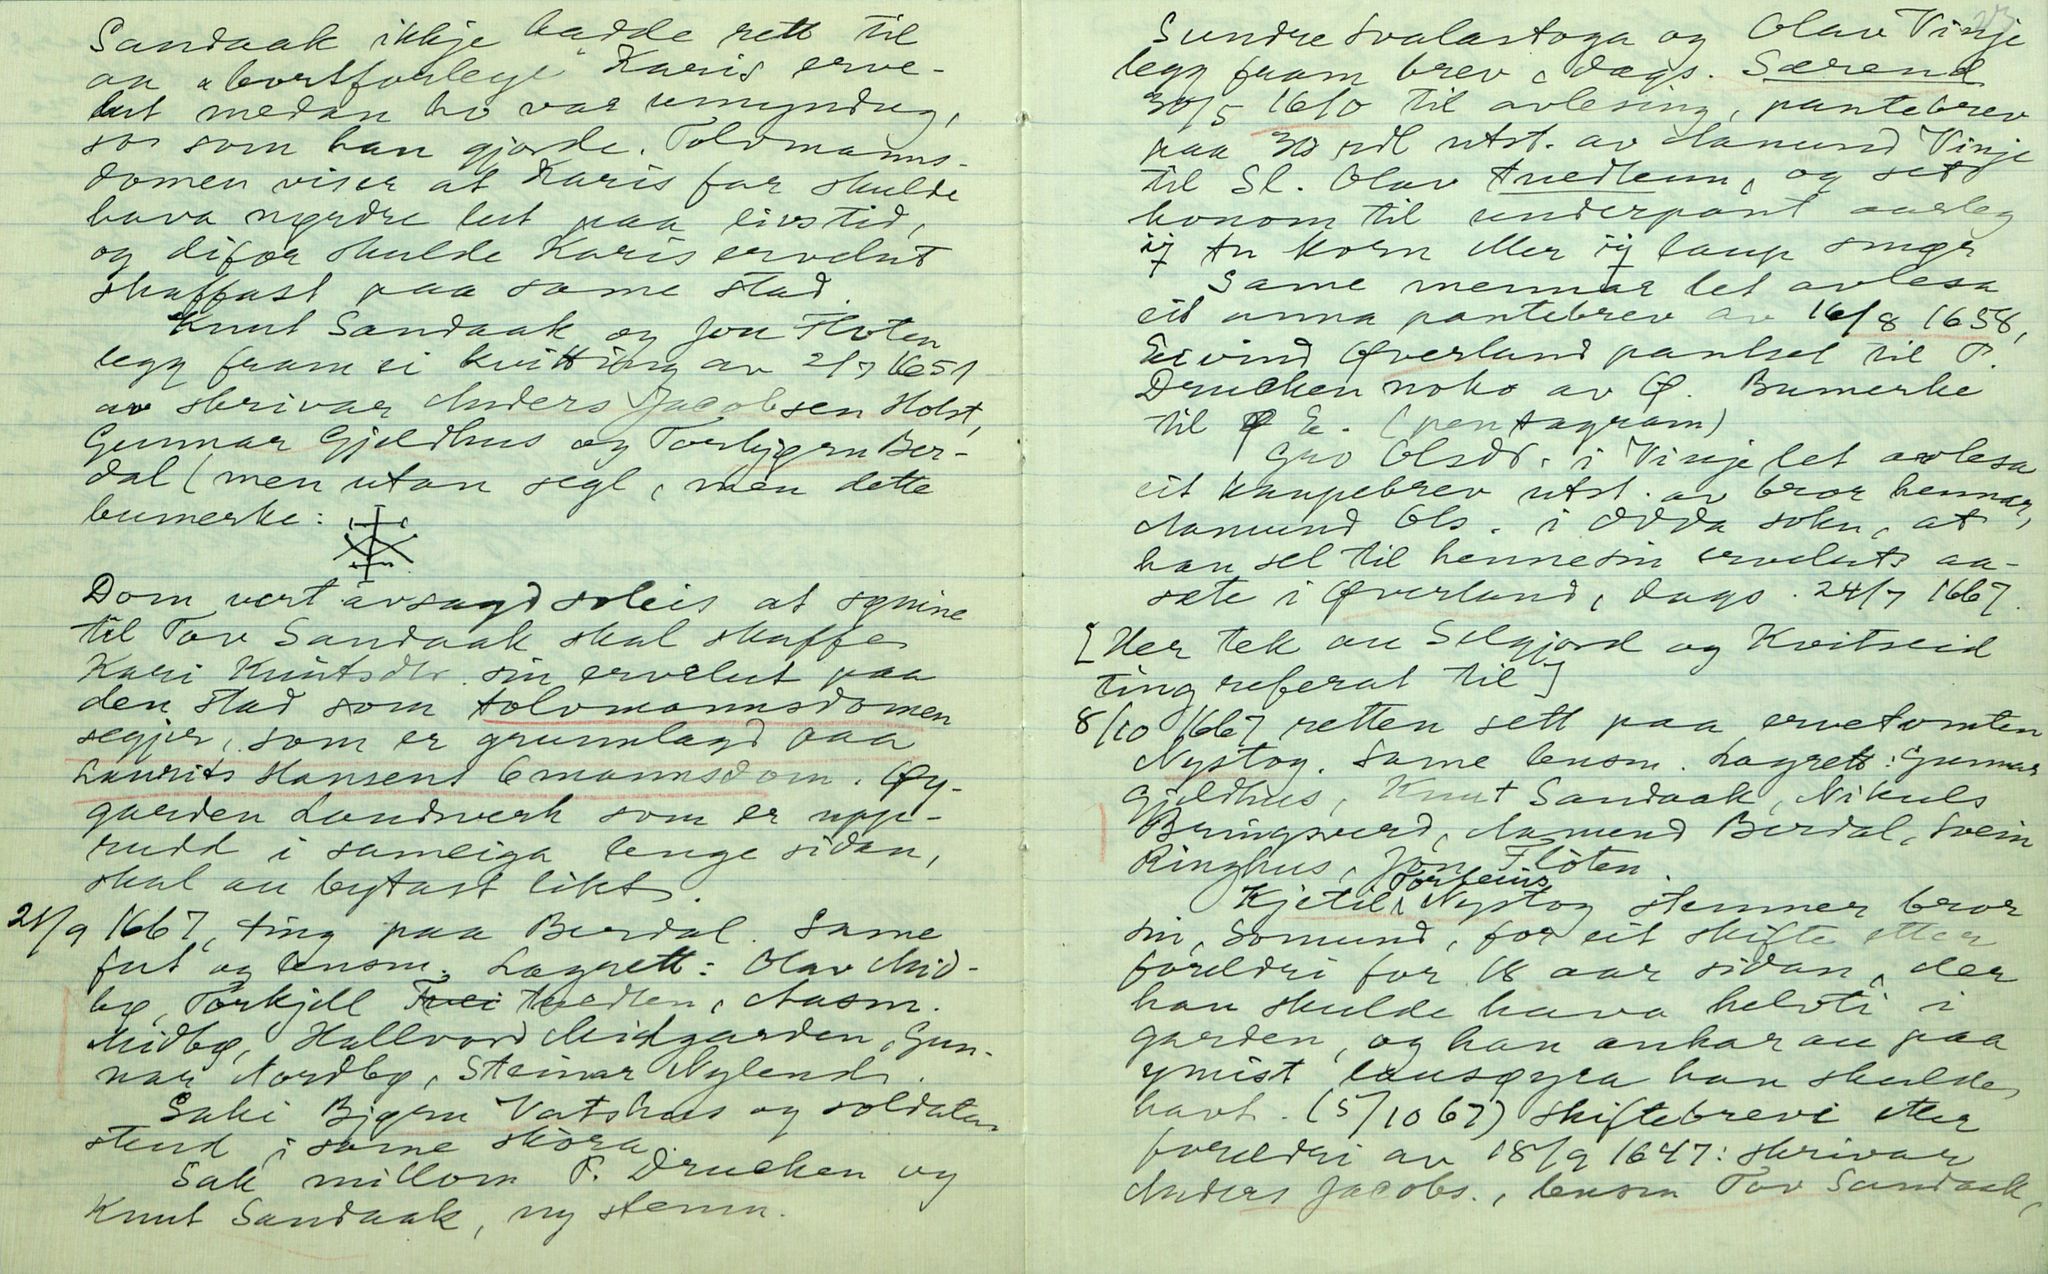 Sandaak ikkje hadde rett til
aa "bortforlege" Karis erve-
lut medan ho var umyndug,
so som han gjorde. Tolvmanns-
domen viser at Karis far skulde
hava nørdre lut paa livstid,
og difor skulde Karis ervelut
skaffast paa same stad.
Knut Sandaak og Jon Floten
legg fram ei kvitting av 2/7 1651
av skrivar Anders Jacobsen Holst,
Gunnar Gjeldhus og Torbjørn Ber-
dal (men utan segl, men dette
bumerke:
Dom vert avsagd soleis at sønine
til Tov Sandaak skal skaffe
Kari Knutsdtr. sin ervelut paa
den stad som tolvmannsdomen
segjer, som er grunnlagd paa
Laurits Hansens 6mannsdom. Øy-
garden Landverk som er uppe-
rudd i sameiga lenge sidan,
skal au bytast likt.
21/9 1667, ting paa Berdal. Same
fut og lensm. Lagrett: Olav Mid-
bø, Torkjell Tvedten, Aasm.
Midbø, Hallvord Midgarden, Gun-
nar Nordbø, Steinar Nyland.
Saki Bjørn Vatshus og soldaten
stend i same skora.
Sak millom P. Drucken og
Knut Sandaak, ny stemn.
23
Sundre Svalastoga og Olav Vinje
legg fram brev, dags. Særend
30/5 1610 til avlesing, pantebrev
paa 30 rdl utst. av Aamund Vinje
til Sl. Olav Tuedten, og set
honom til underpant aarleg
ij tn korn eller ij laup smør
Same mennar let avlesa
eit anna pantebrev av 16/8 1658,
Eivind Øverland pantset til P.
Drucken noko av Ø. Bumerke
til E. (pentagram)
Gro Olsdr. i Vinje let avlesa
eit kaupebrev utst. av bror hennar,
Aamund Ols. i Odda sokn, at
han sel til henne sin ervelut aa-
sete i Øverland, dags. 24/7 1667.
[Her tek au Selgjord og Kvitseid
tingreferat til]
8/10 1667 retten sett paa ervetomten
Nystog. Same lensm. Lagrett: Gunnar
Gjeldhus, Knut Sandaak, Nikuls
Bringsverd, Aamund Berdal, Svein
Ringhus, Jon Flöten.
Kjetil Torbeins Nystog stemner bror
sin, Somund, for eit skifte etter
foreldri for 18 aar sidan, der
han skulde hava helvti i
garden, og han ankar au paa
ymist lausøyra han skulde
havt. (5/10 67) Skiftebrevi etter
foreldri av 18/9 1647: skrivar
Anders Jacobs., lensm Tov Sandaak,